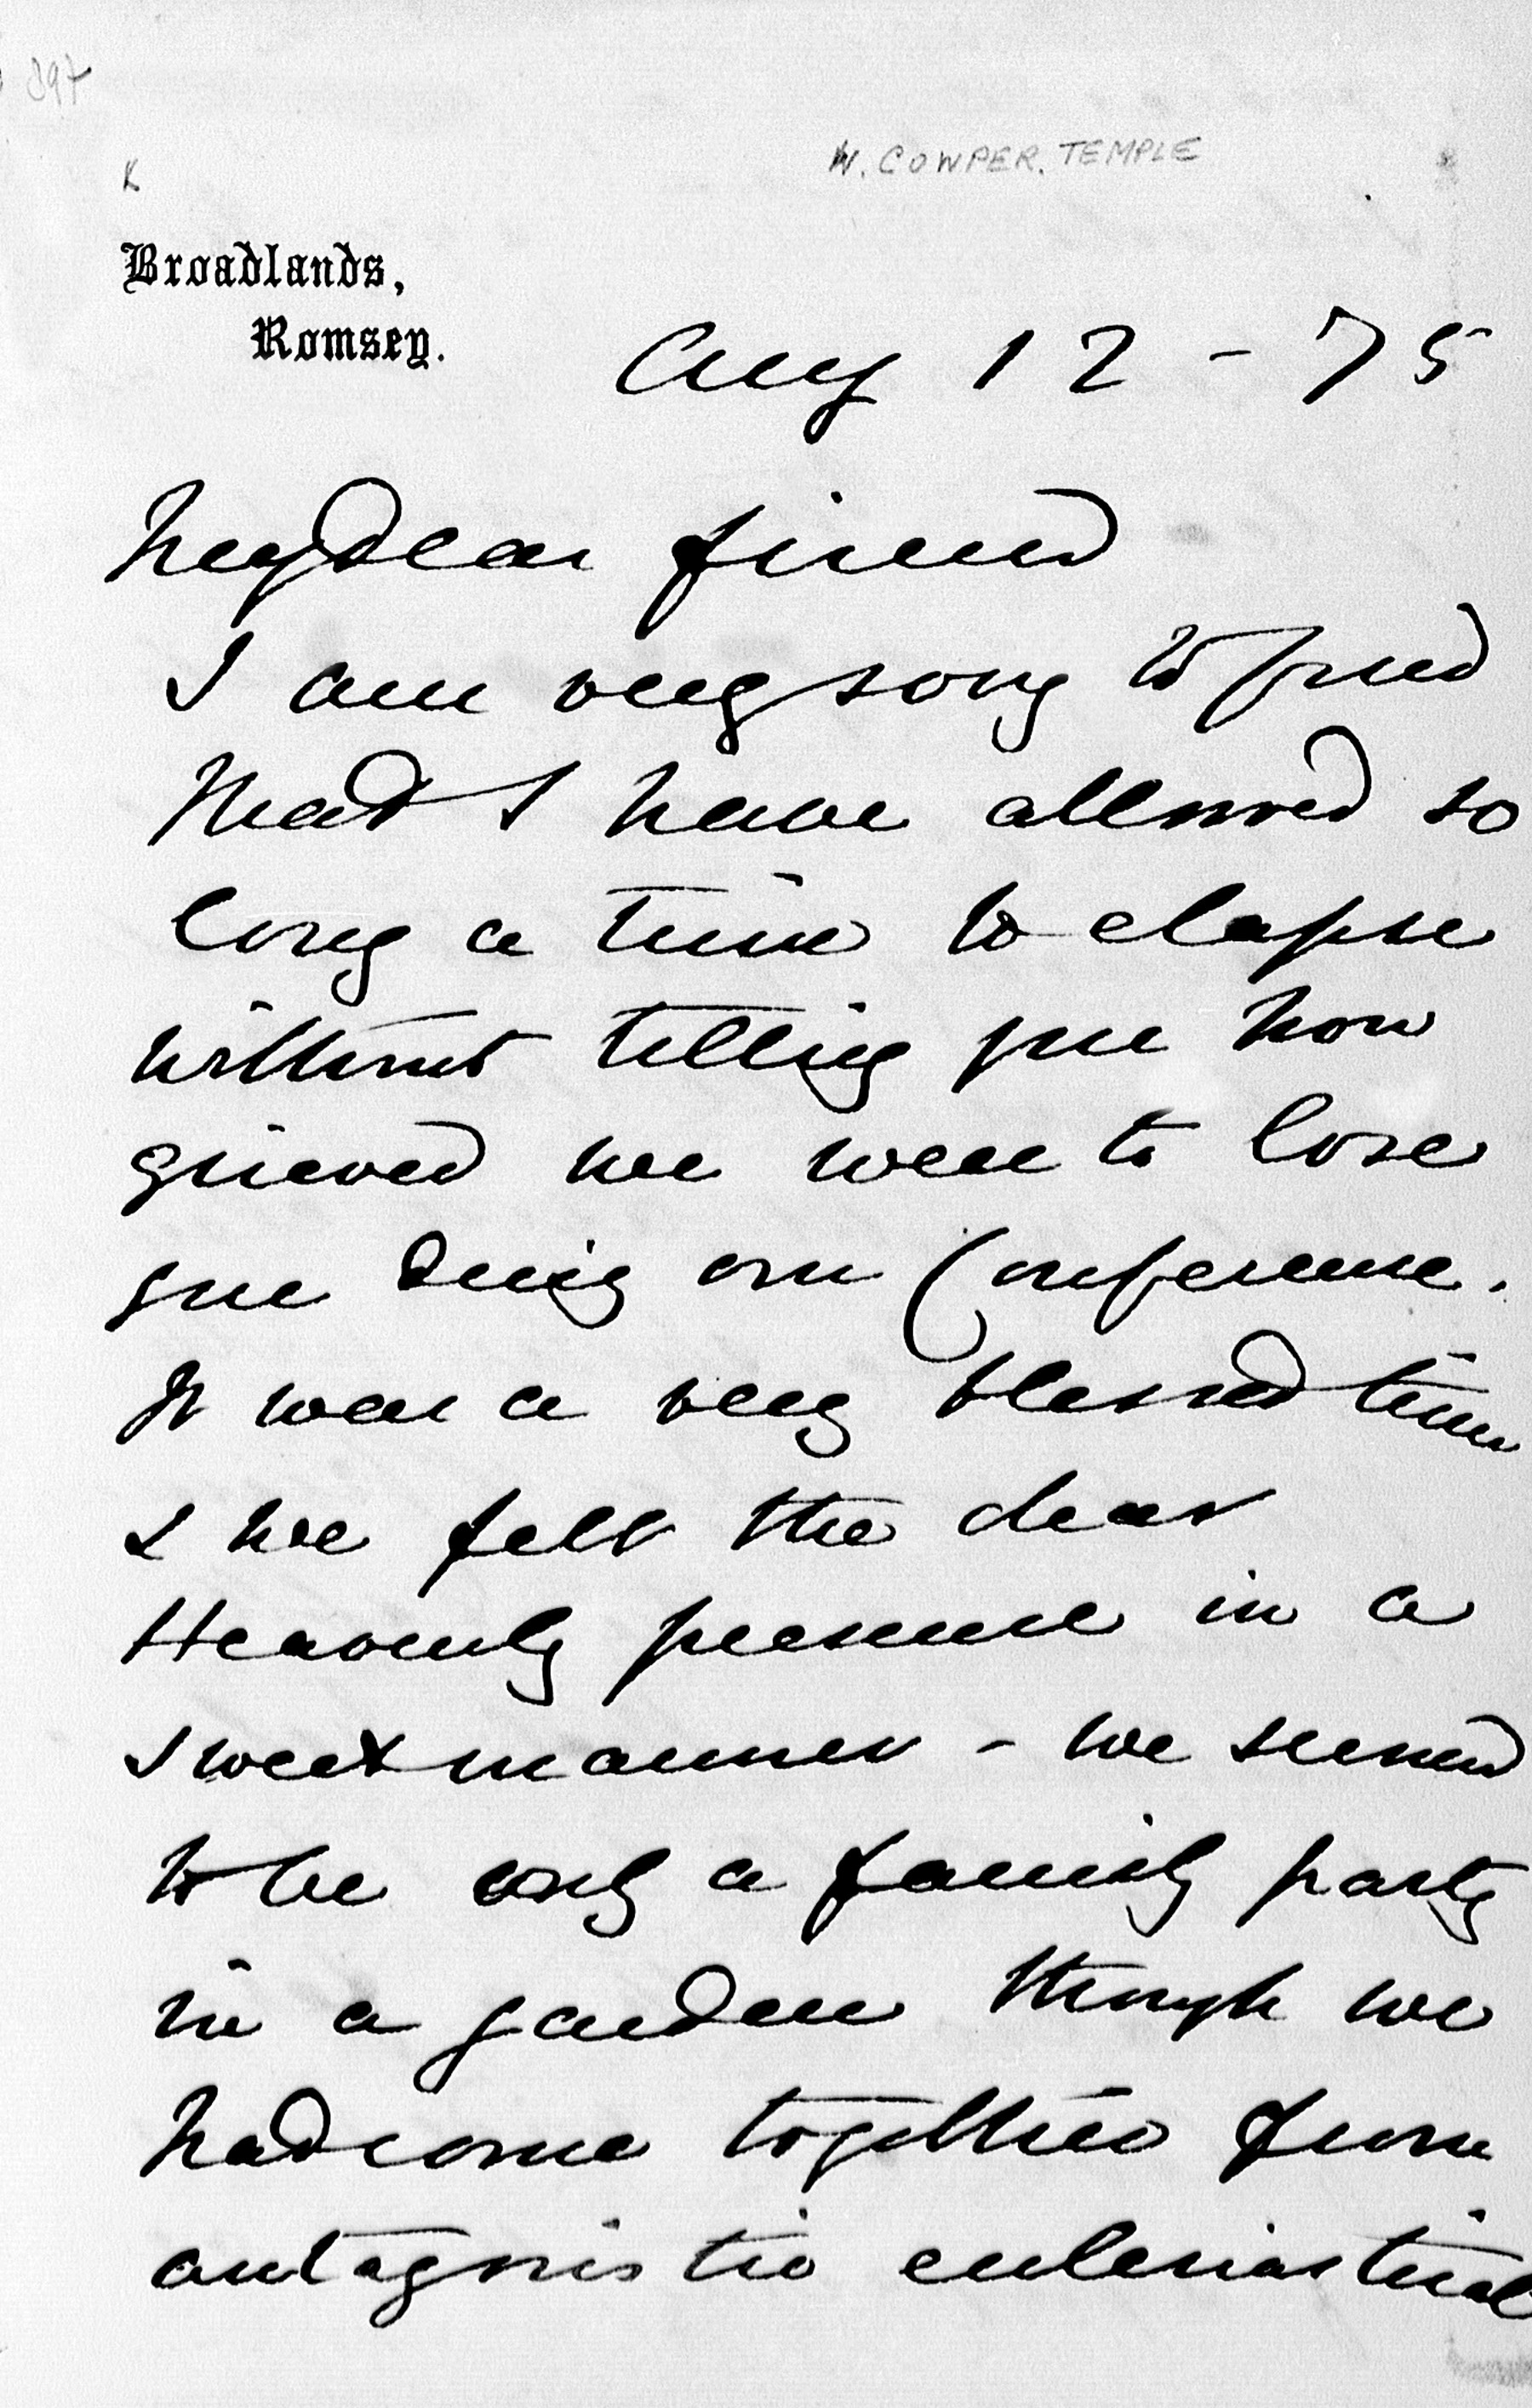 397
W. COWPER. TEMPLE
Broadlands,
Romsey.
Aug 12 - 75
My dear friend
I am very sorry to find
that I have allowed so
long a time to elapse
without telling you how
grieved we were to lose
you during our Conference.
It was a very blessed time
& we felt the dear
Heavenly presence in a
sweet manner - we seemed
to be only a family party
in a garden though we
had come together from
antagonistic ecclesiastical